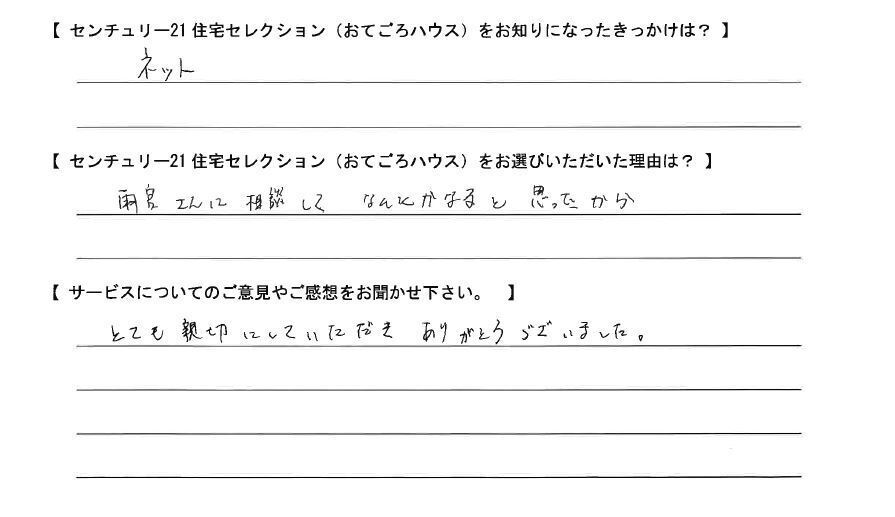 【 センチュリー21 住宅セレクション（おてごろハウス）をお知りになったきっかけは？ 】
ネット
【 センチュリー21 住宅セレクション（おてごろハウス）をお選びいただいた理由は？ 】
雨宮さんに 相談して なんとかなると 思ったから
【 サービスについてのご意見やご感想をお聞かせ下さい。 】
とても 親切にしていただき ありがとうございました。